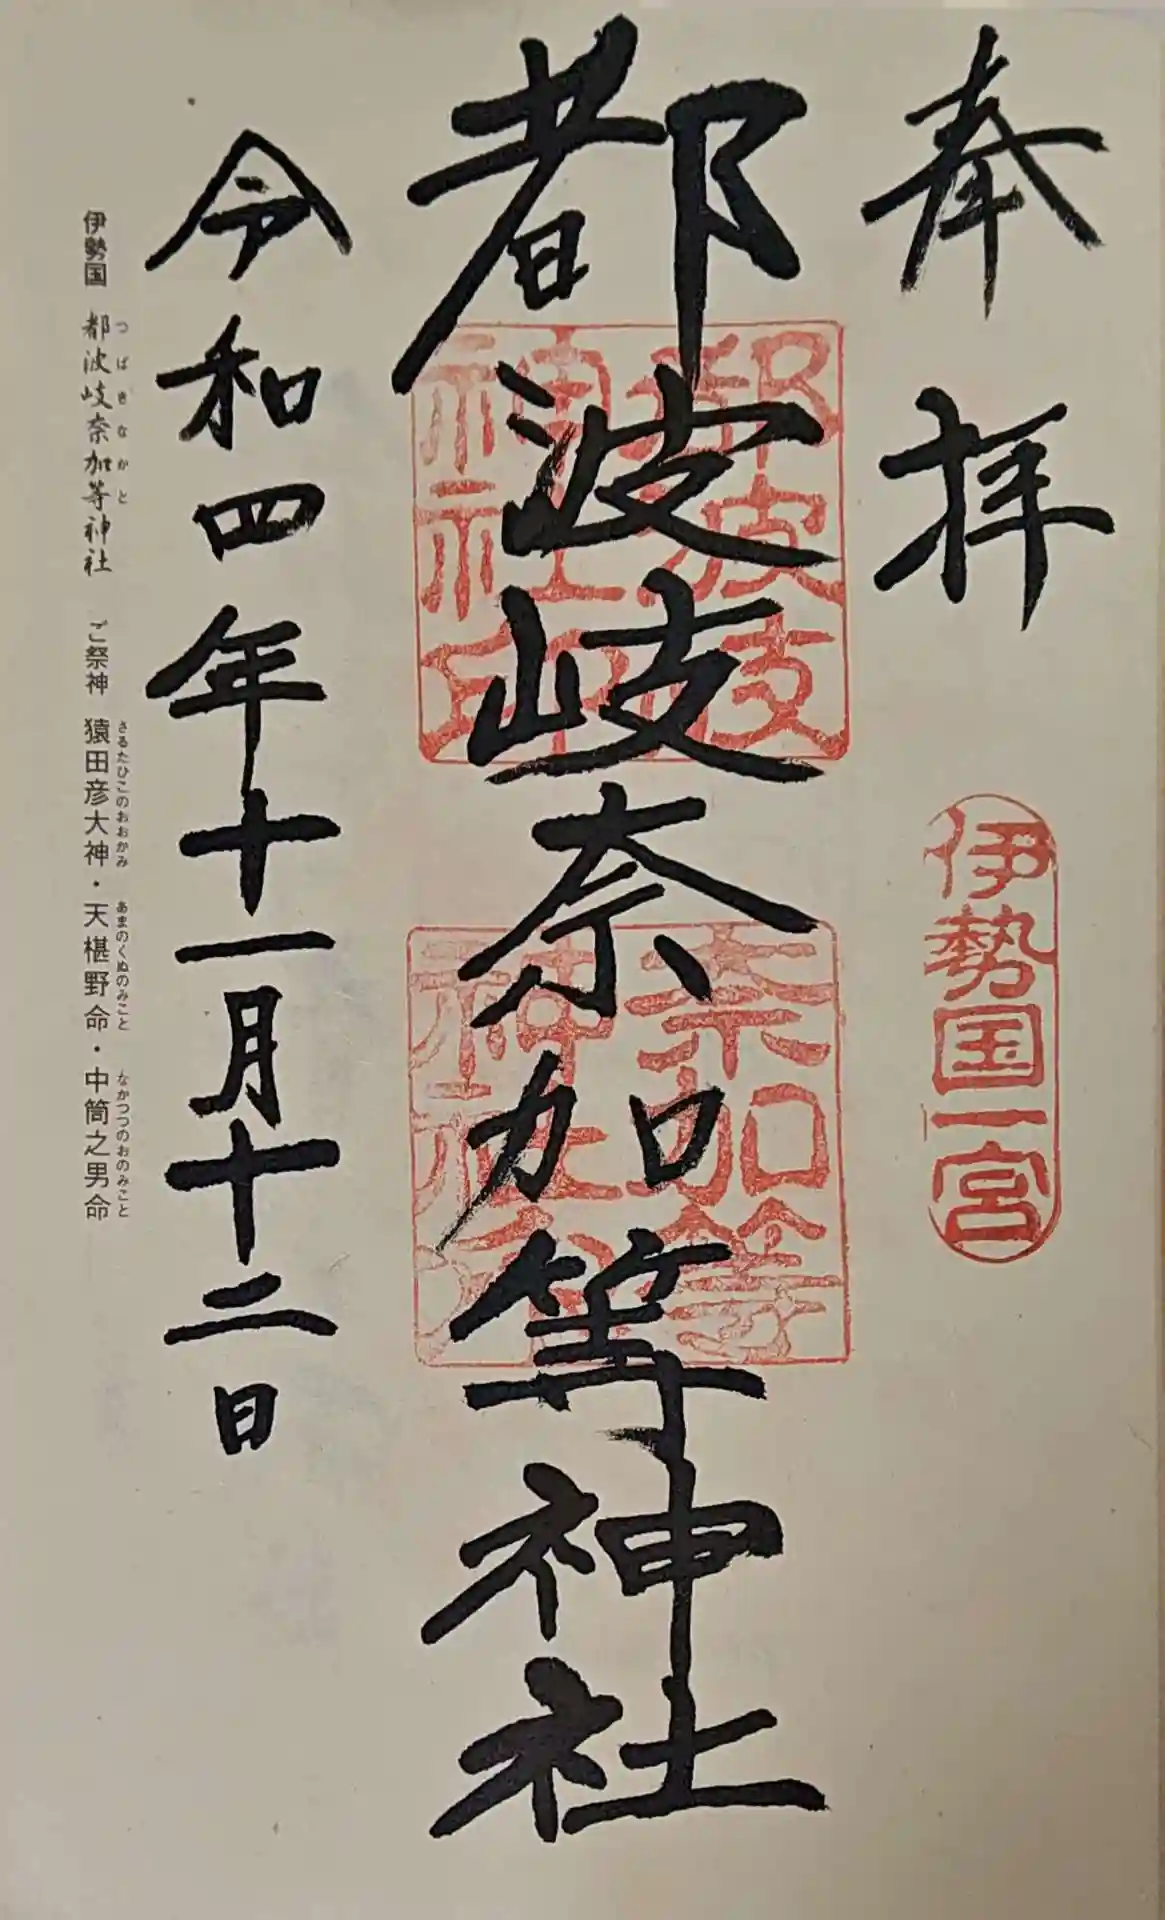 奉拝
伊勢国一宮
都波岐奈加等神社
都波岐
神社印
奈加等
神社
令和四年十一月十二日
つばきなかと
伊勢国 都波岐奈加等神社 ご祭神 猿田彦大神・天椹野命・中筒之男命
さるたひこのおおかみ あまのくぬのみこと なかつつのおのみこと